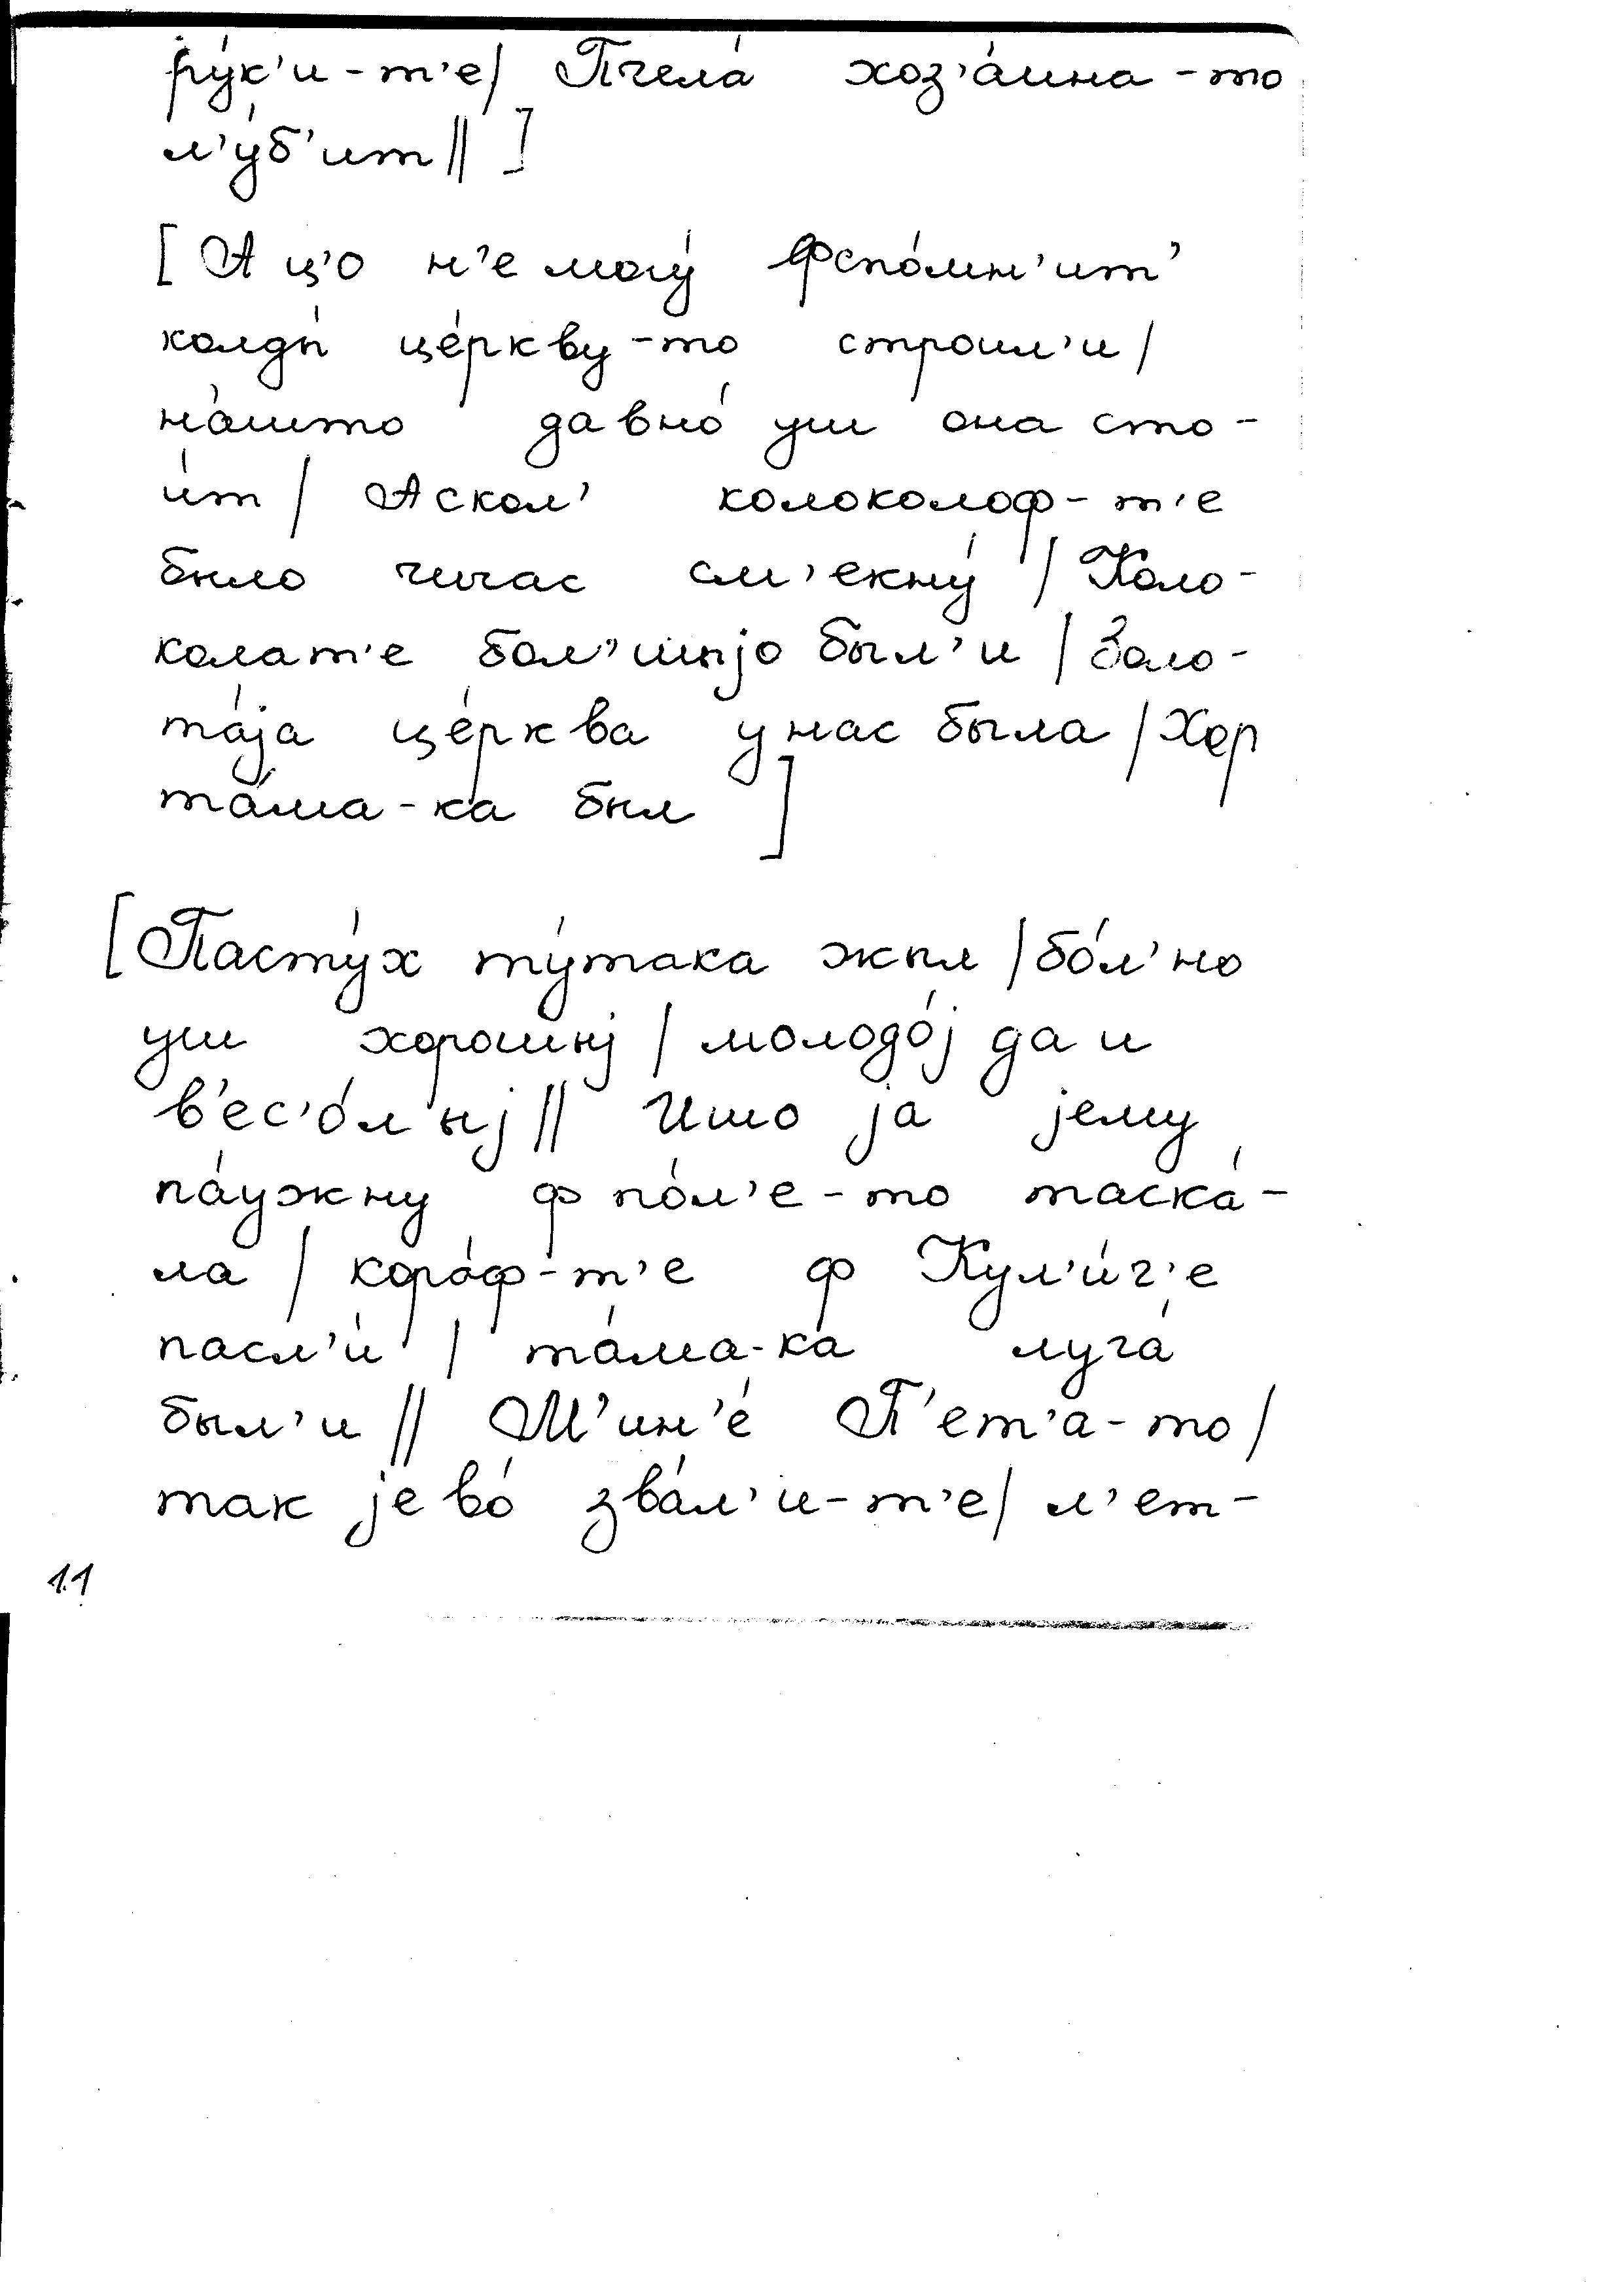 ру́к'и-т'е/ Пчела́ хоз'а́ина-то
л'у́б'ит || ]
[ А ц'о н'е могу́ фспо́мн'ит'
колды́ це́ркву-то строил'и /
на́што давно́ уш она сто-
и́т / А скол' колоколоф-т'е
было чичас см'екну́ / Коло-
колат'е бол'шыjо был'и / Золо-
та́jа це́рква у нас была / Хор
та́ма-ка был ]
[ Пасту́х ту́така жыл / бо́л'но
уш хорошыj / молодо́j да и
в'ес'о́лыj || Ишо jа jему
па́ужну ф по́л'е-то таска́-
ла / кора́ф-т'е ф Кул'и́г'е
пасл'и́ / та́ма-ка луга́
был'и || М'ин'е́ П'ет'а-то /
так jево́ зва́л'и-т'е/ л'ет-
11